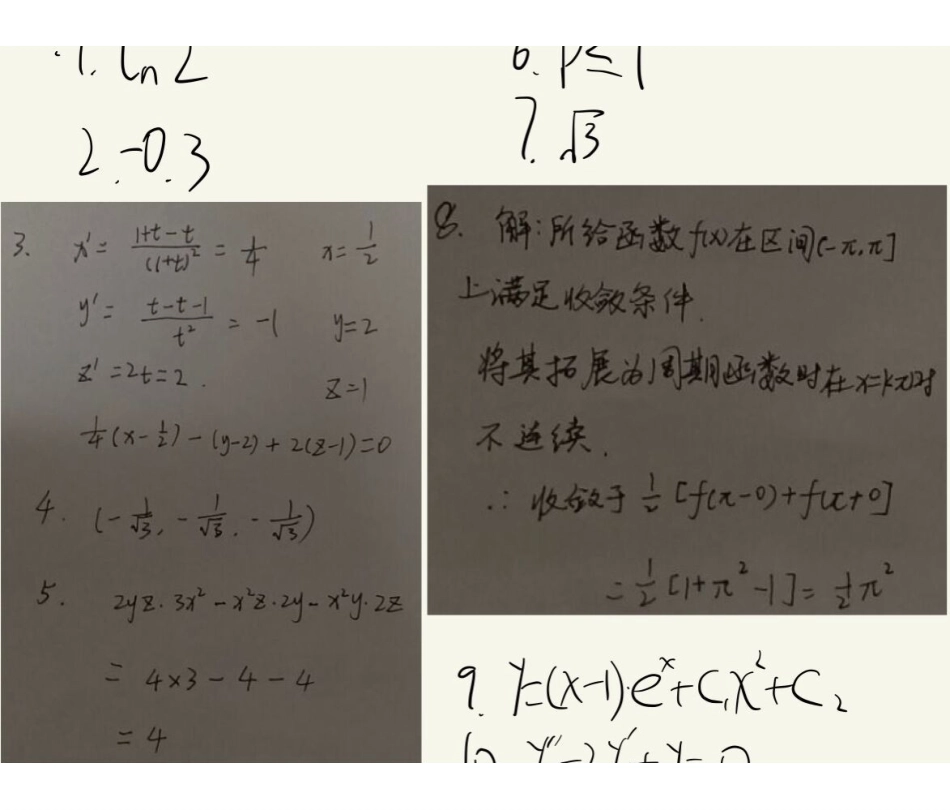 1. ln 2
2. -0.3
3. x' = (1+t-t)/(1+t)² = 1/4 x = 1/2
y' = (t-t-1)/t² = -1 y=2
z' = 2t = 2. z=1
1/4(x-1/2)-(y-2)+2(z-1)=0
4. (-1/√3, -1/√3, -1/√3)
5. 2yz·3x²-x²z·2y-x²y·2z
= 4×3-4-4
= 4
6. P≤1
7. √3
8. 解:所给函数f(x)在区间(-π,π]
上满足收敛条件.
将其拓展为周期函数时在x=kπ时
不连续.
∴ 收敛于 1/2 [f(π-0)+f(π+0]
= 1/2 [1+π²-1] = 1/2 π²
9. y=(x-1)·eˣ+C₁x²+C₂
10. y''-2y'+y=0